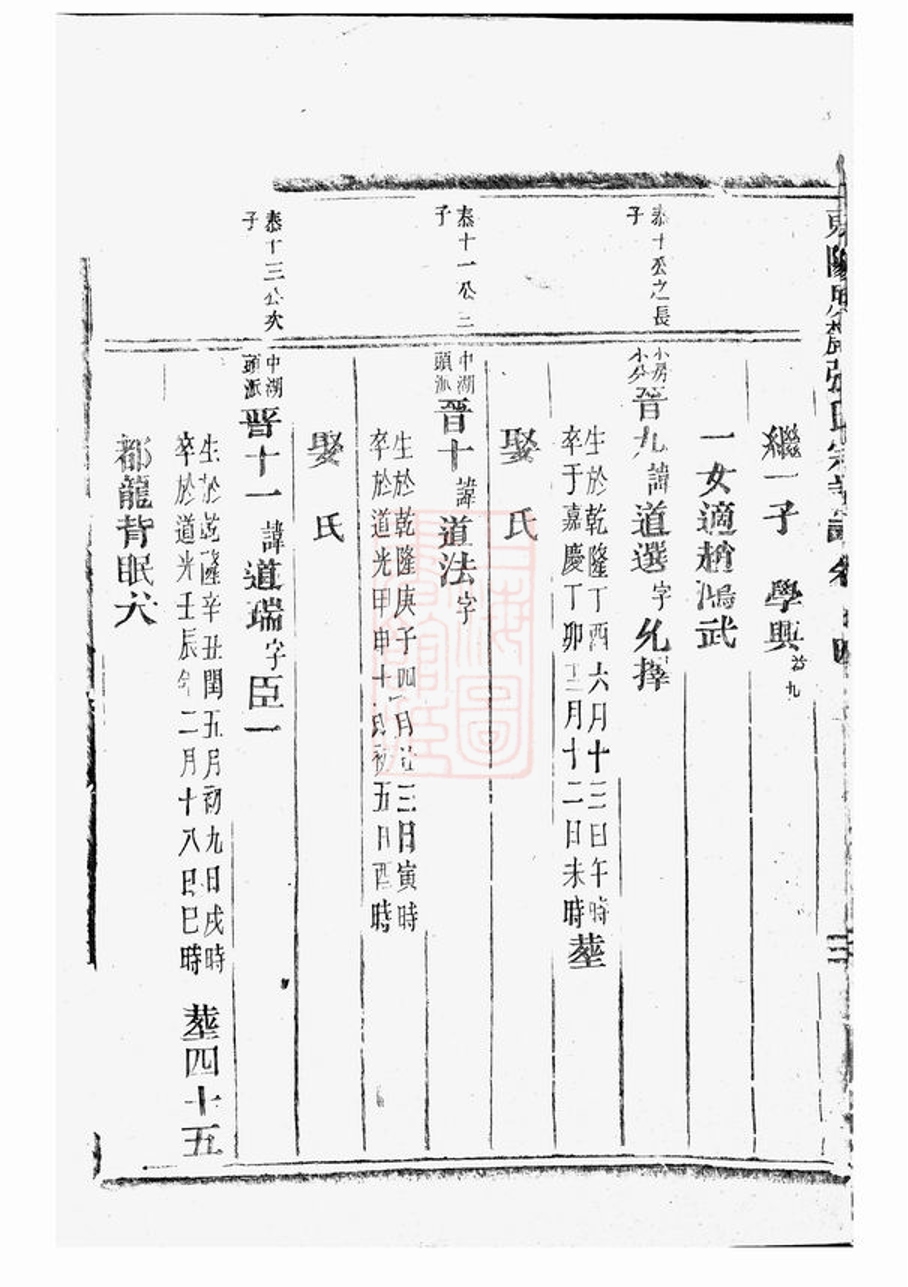 繼一子　學興
一女適趙鴻武
泰十公之長
子
小房
小分
晉九諱道選字允擇
生於乾隆丁酉六月十三日午時
卒于嘉慶丁卯十二月十二日未時塟
娶　氏
泰十一公三
子
中湖
頭派
晉十諱道法字
生於乾隆庚子四月廿三日寅時
卒於道光甲申十月初五日酉時
娶　氏
泰十三公次
子
中湖
頭派
晉十一諱道瑞字臣一
生於乾隆辛丑閏五月初九日戌時
卒於道光壬辰年二月十八日巳時
塟四十五
都龍背眠犬